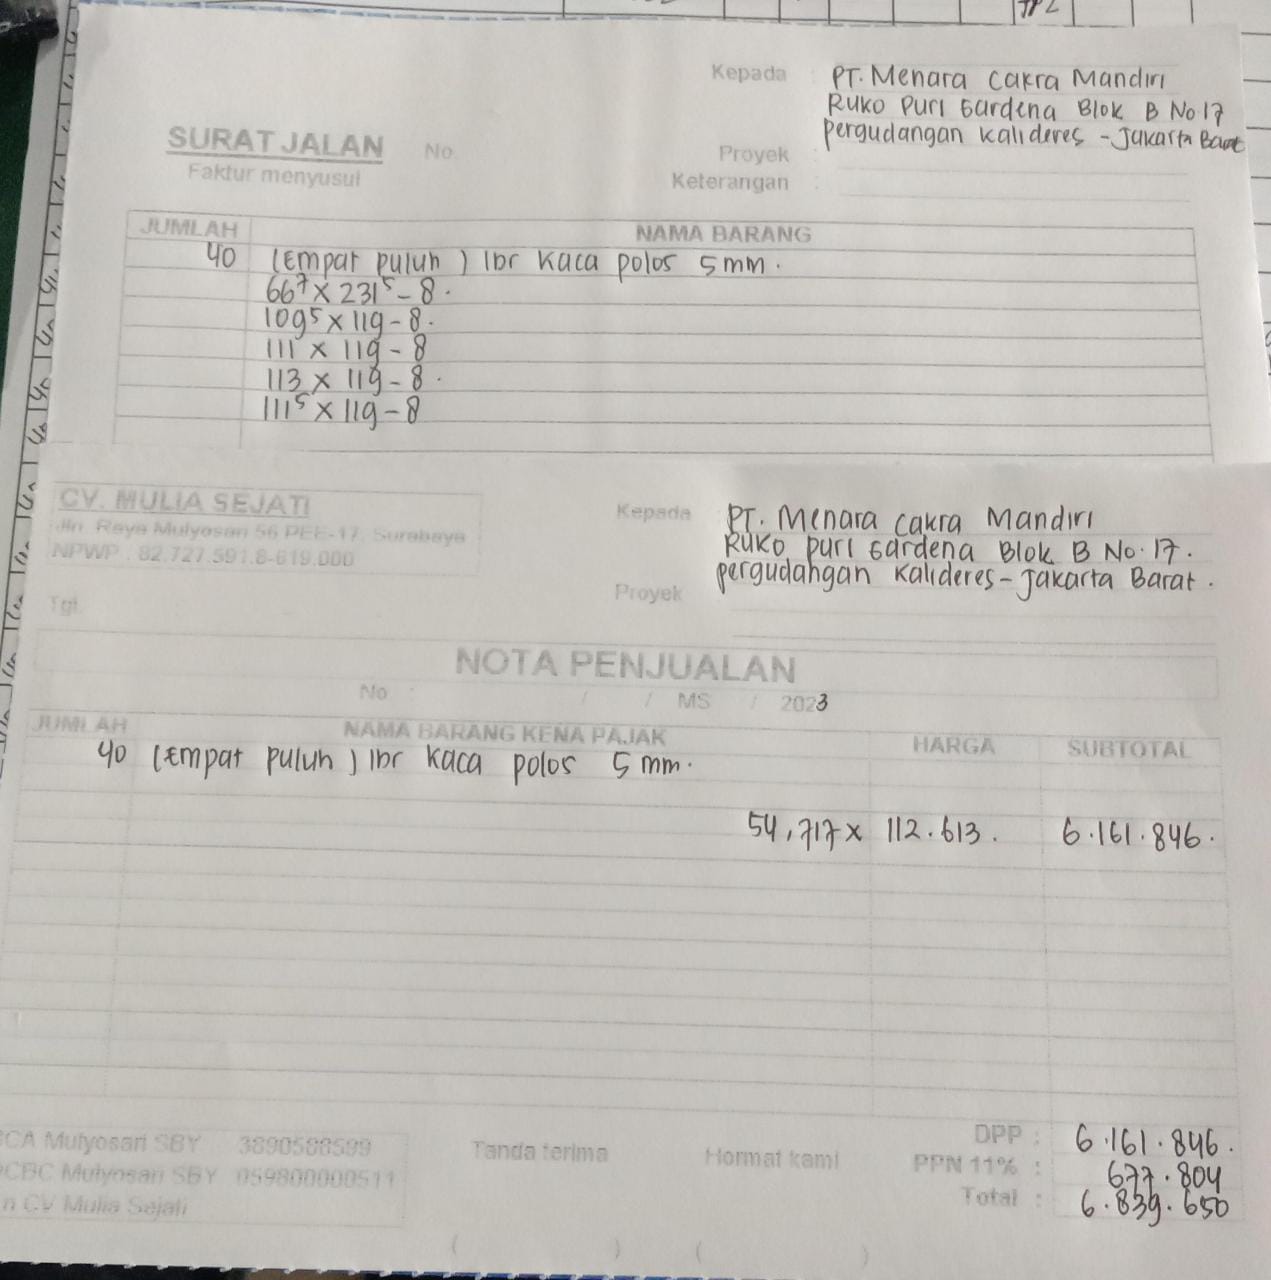 Kepada : PT. Menara Cakra Mandiri
Ruko Puri Gardena Blok B No.17
Pergudangan Kalideres - Jakarta Barat
SURAT JALAN No
Faktur menyusul
Proyek :
Keterangan :
JUMLAH NAMA BARANG
40 (Empat puluh) lbr Kaca polos 5 mm.
66⁷ x 231⁵ - 8.
109⁵ x 119 - 8.
111 x 119 - 8
113 x 119 - 8.
111⁵ x 119 - 8
CV. MULIA SEJATI
Jln. Raya Mulyosari 56 PEE-17, Surabaya
NPWP : 82.727.591.8-619.000
Kepada PT. Menara Cakra Mandiri
Ruko Puri Gardena Blok B No.17.
Pergudangan Kalideres - Jakarta Barat.
Tgl. Proyek
NOTA PENJUALAN
No : / / MS / 2023
JUMLAH NAMA BARANG KENA PAJAK HARGA SUBTOTAL
40 (Empat puluh) lbr Kaca polos 5 mm.
54,717 x 112.613. 6.161.846.
BCA Mulyosari SBY 3890588599
OCBC Mulyosari SBY 059800000511
n CV Mulia Sejati
Tanda terima Hormat kami
DPP : 6.161.846.
PPN 11% : 677.804
Total : 6.839.650
( ) ( )